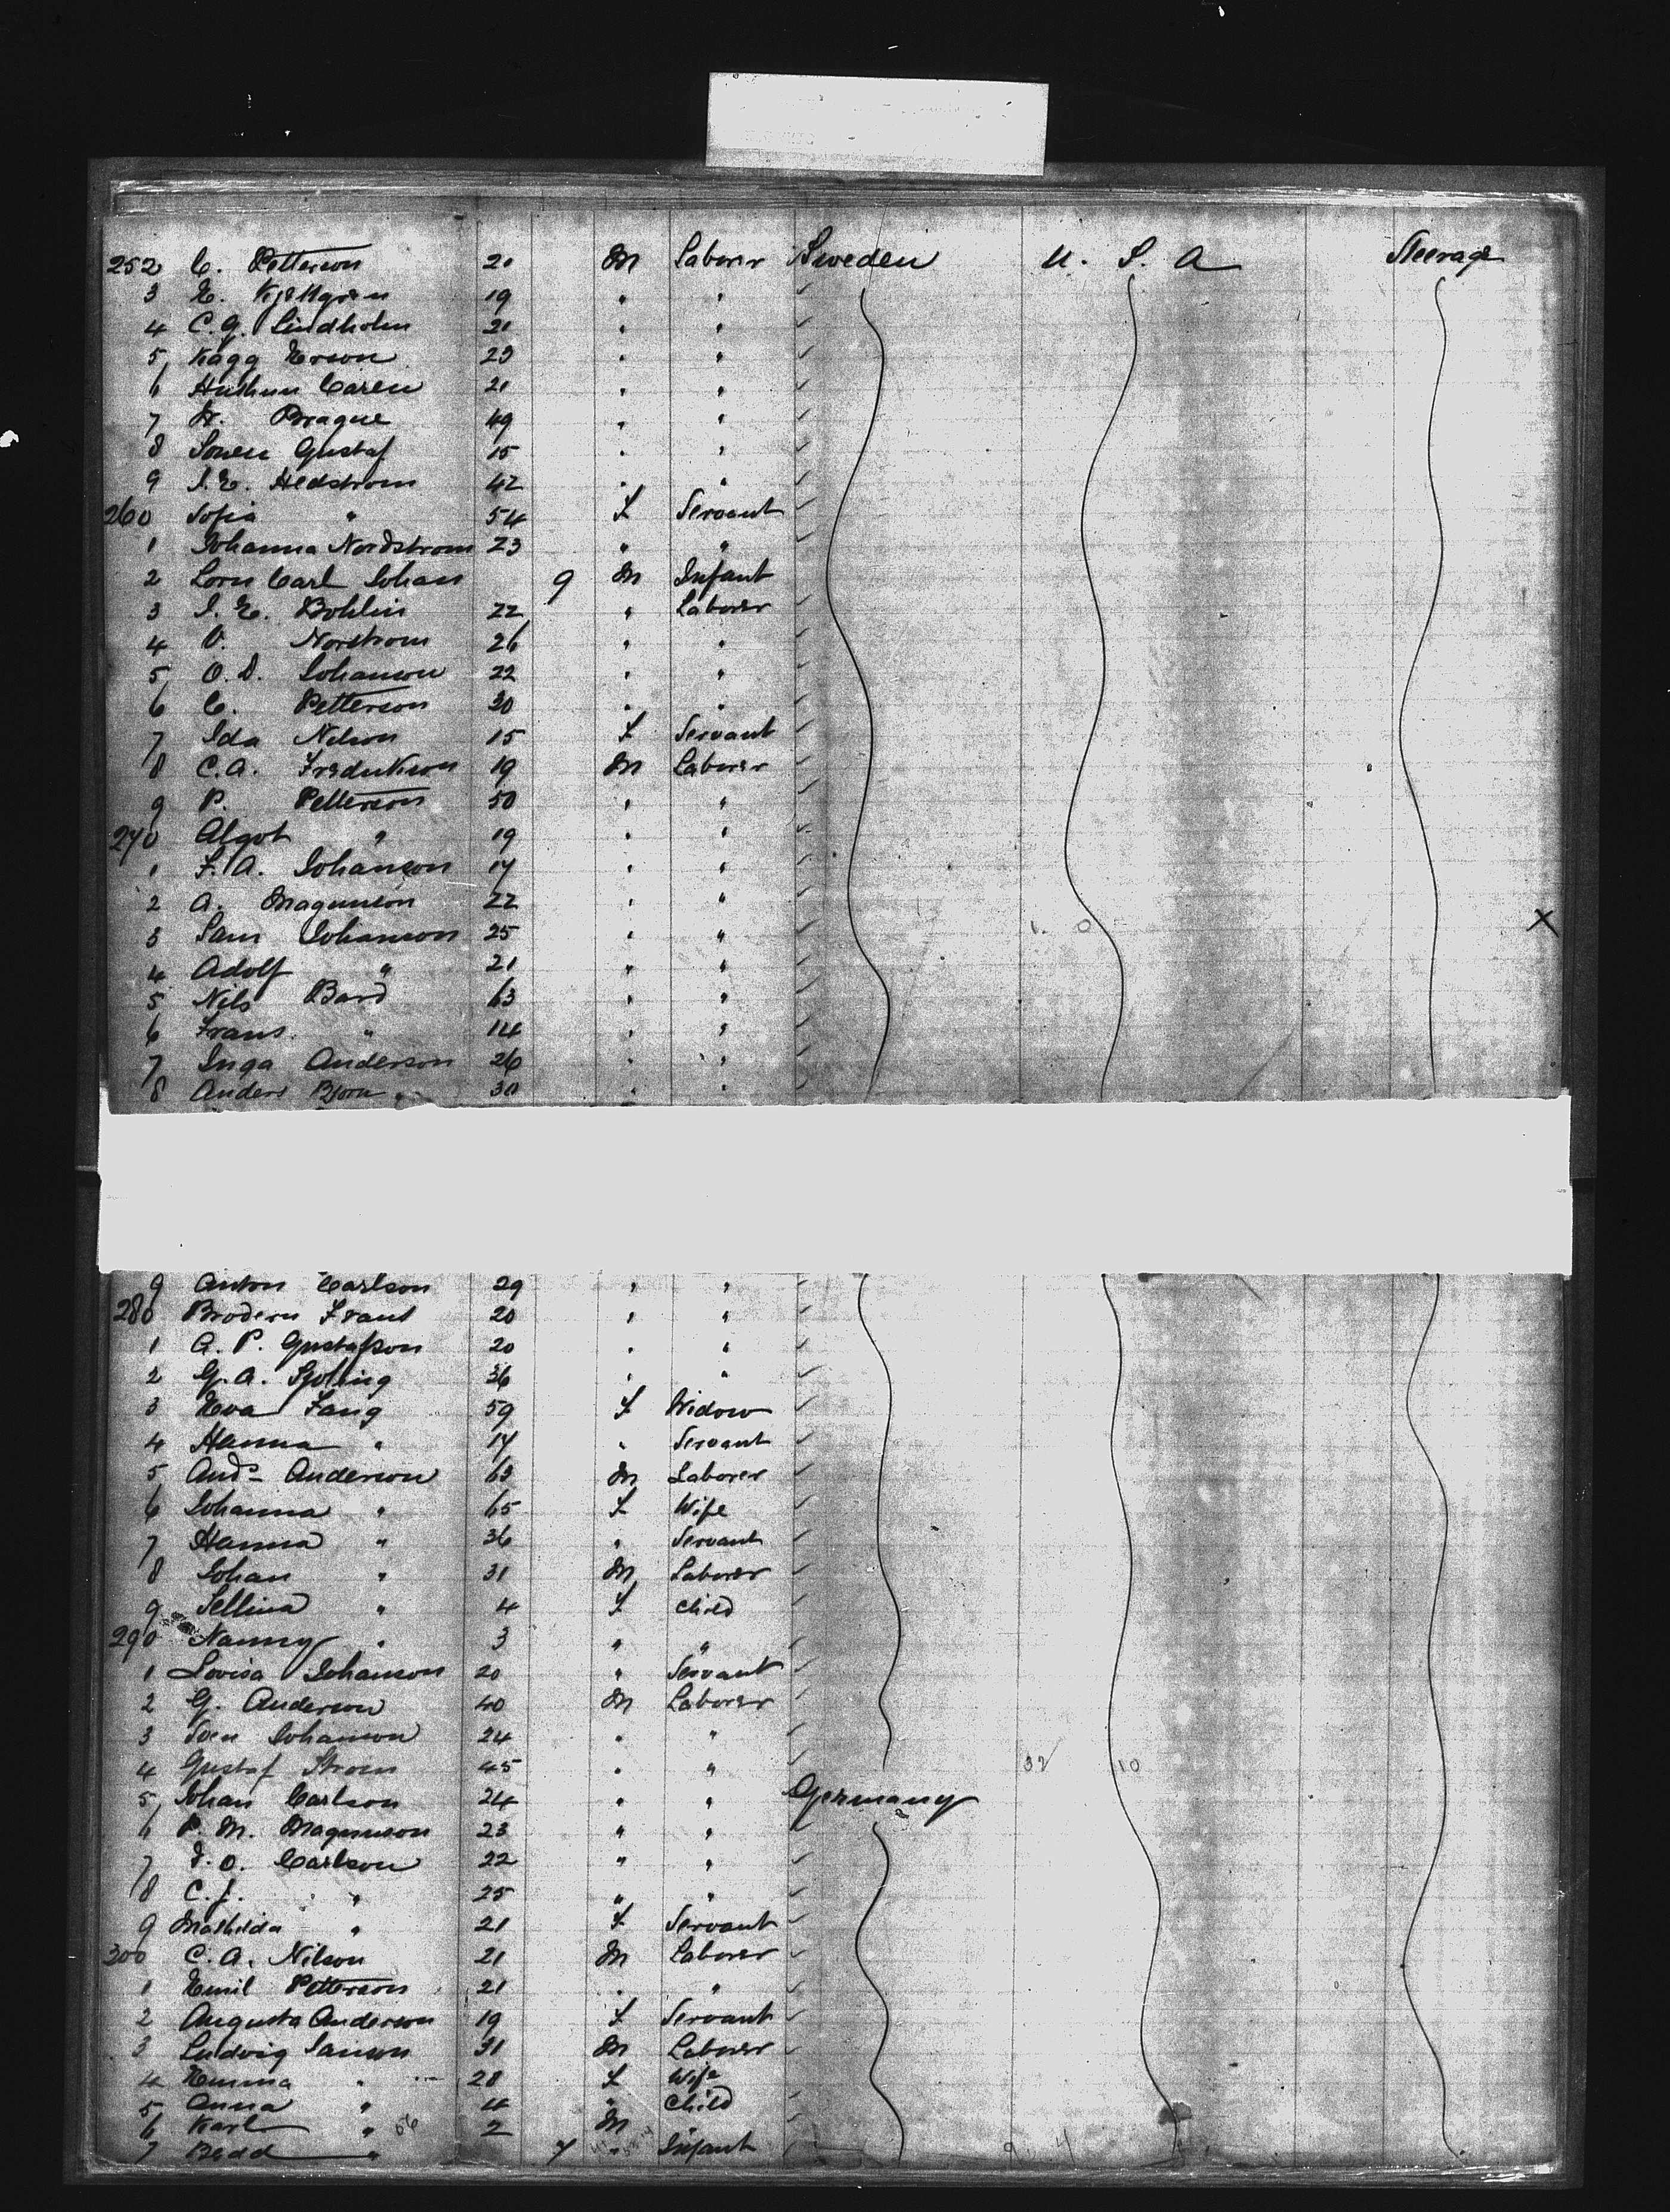 252 C. Petterson 21 M Laborer Sweden U. S. A Steerage
3 E. Kjellgren 19 " "
4 C. G. Lindholm 21 " "
5 Kagg Erson 23 " "
6 Caren 21 " "
7 Prague 49 " "
8 Sonen Gustaf 15 " "
9 J. E. Hedstrom 42 " "
260 Sofia " 54 F Servant
1 Johanna Nordstrom 23 " "
2 Carl Johan 9 M Infant
3 J. E. Bohlin 22 " Laborer
4 V. Norstrom 26 " "
5 O. D. Johanson 22 " "
6 C. Petterson 30 " "
7 Ida Nelson 15 F Servant
8 C. A. Fredrikson 19 M Laborer
9 P. Petterson 50 " "
270 Algot " 19 " "
1 F. A. Johanson 17 " "
2 A. Magnuson 22 " "
3 Sam Johanson 25 " " X
4 Adolf " 21 " "
5 Nils Bard 63 " "
6 Frans " 14 " "
7 Inga Anderson 26 " "
8 Anders Bjorn 30 " "
9 Anton Carlson 29 " "
280 Brodern Frans 20 " "
1 A. P. Gustafson 20 " "
2 G. A. 36 " "
3 Eva Fang 59 F Widow
4 Hanna " 17 " Servant
5 And- Anderson 63 M Laborer
6 Johanna " 65 F Wife
7 Hanna " 36 " Servant
8 Johan " 31 M Laborer
9 Sellina " 4 F Child
290 Nanny " 3 " "
1 Lovisa Johanson 20 " Servant
2 G. Anderson 40 M Laborer
3 Sven Johanson 24 " "
4 Gustaf Strom 45 " " 32 10
5 Johan Carlson 24 " " Germany
6 P. M. Magnuson 23 " "
7 Carlson 22 " "
8 C. J. " 25 " "
9 Mathilda " 21 F Servant
300 C. A. Nilson 21 M Laborer
1 Emil Petterson 21 " "
2 Augusta Anderson 19 F Servant
3 Ludvig Janson 31 M Laborer
4 Emma " 28 F Wife
5 Anna " 4 " Child
6 Karl " 2 M
7 " 7 " Infant